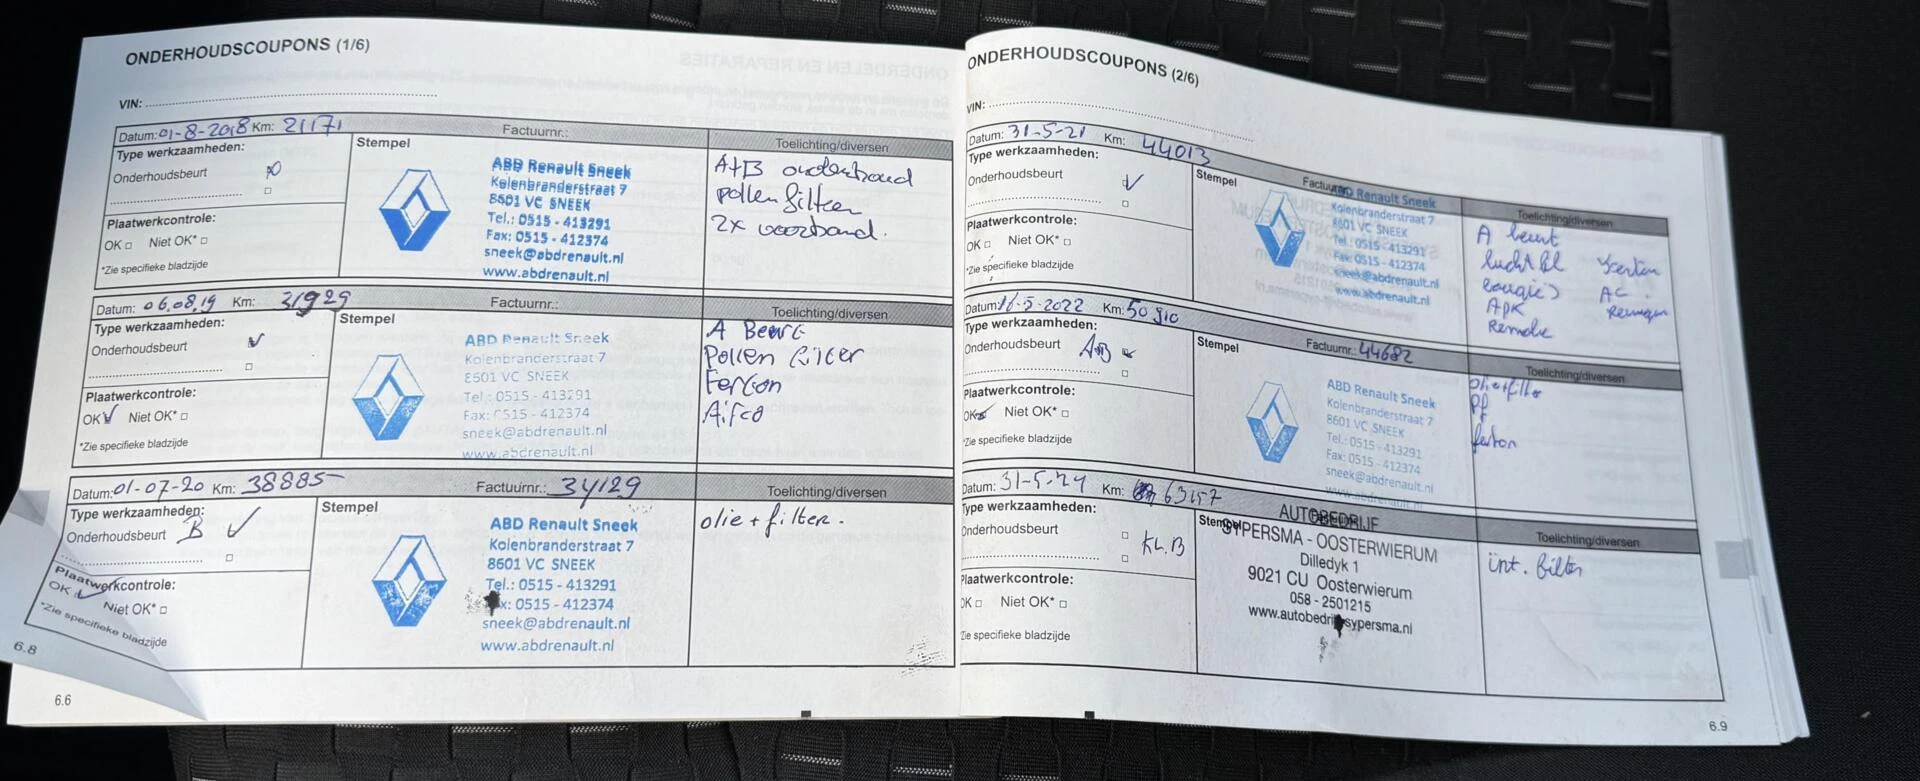 ONDERHOUDSCOUPONS (1/6)
VIN:
Datum: 01-8-2018 Km: 21171 Factuurnr.:
Type werkzaamheden:
Onderhoudsbeurt
Plaatwerkcontrole:
OK Niet OK*
*Zie specifieke bladzijde
Stempel
ABD Renault Sneek
Kolenbranderstraat 7
8601 VC SNEEK
Tel.: 0515 - 413291
Fax: 0515 - 412374
sneek@abdrenault.nl
www.abdrenault.nl
Toelichting/diversen
A+B onderhoud
pollen filter
2x voorband.
Datum: 06.08.19 Km: 31929 Factuurnr.:
Type werkzaamheden:
Onderhoudsbeurt
Plaatwerkcontrole:
OK Niet OK*
*Zie specifieke bladzijde
Stempel
ABD Renault Sneek
Kolenbranderstraat 7
8601 VC SNEEK
Tel.: 0515 - 413291
Fax: 0515 - 412374
sneek@abdrenault.nl
www.abdrenault.nl
Toelichting/diversen
A Beurt
Pollen filter
Ferton
Airco
Datum: 01-07-20 Km: 38885 Factuurnr.: 34129
Type werkzaamheden:
Onderhoudsbeurt B
Plaatwerkcontrole:
OK Niet OK*
*Zie specifieke bladzijde
Stempel
ABD Renault Sneek
Kolenbranderstraat 7
8601 VC SNEEK
Tel.: 0515 - 413291
Fax: 0515 - 412374
sneek@abdrenault.nl
www.abdrenault.nl
Toelichting/diversen
olie + filter.
6.8
6.6
ONDERHOUDSCOUPONS (2/6)
VIN:
Datum: 31-5-21 Km: 44013
Type werkzaamheden:
Onderhoudsbeurt
Plaatwerkcontrole:
OK Niet OK*
*Zie specifieke bladzijde
Stempel
ABD Renault Sneek
Kolenbranderstraat 7
8601 VC SNEEK
Tel.: 0515 - 413291
Fax: 0515 - 412374
sneek@abdrenault.nl
www.abdrenault.nl
Toelichting/diversen
A beurt
luchtfil
bougies AC.
APK Reinigen
Remolie
Datum: 16-5-2022 Km: 50910 Factuurnr.: 44682
Type werkzaamheden:
Onderhoudsbeurt A+B
Plaatwerkcontrole:
OK Niet OK*
*Zie specifieke bladzijde
Stempel
ABD Renault Sneek
Kolenbranderstraat 7
8601 VC SNEEK
Tel.: 0515 - 413291
Fax: 0515 - 412374
sneek@abdrenault.nl
www.abdrenault.nl
Toelichting/diversen
olie+filter
Pf
+
ferton
Datum: 31-5-24 Km: 63157
Type werkzaamheden:
Onderhoudsbeurt KL.B
Plaatwerkcontrole:
OK Niet OK*
Zie specifieke bladzijde
Stempel
AUTOBEDRIJF
SYPERSMA - OOSTERWIERUM
Dilledyk 1
9021 CU Oosterwierum
058 - 2501215
www.autobedrijfsypersma.nl
Toelichting/diversen
int. filter
6.9